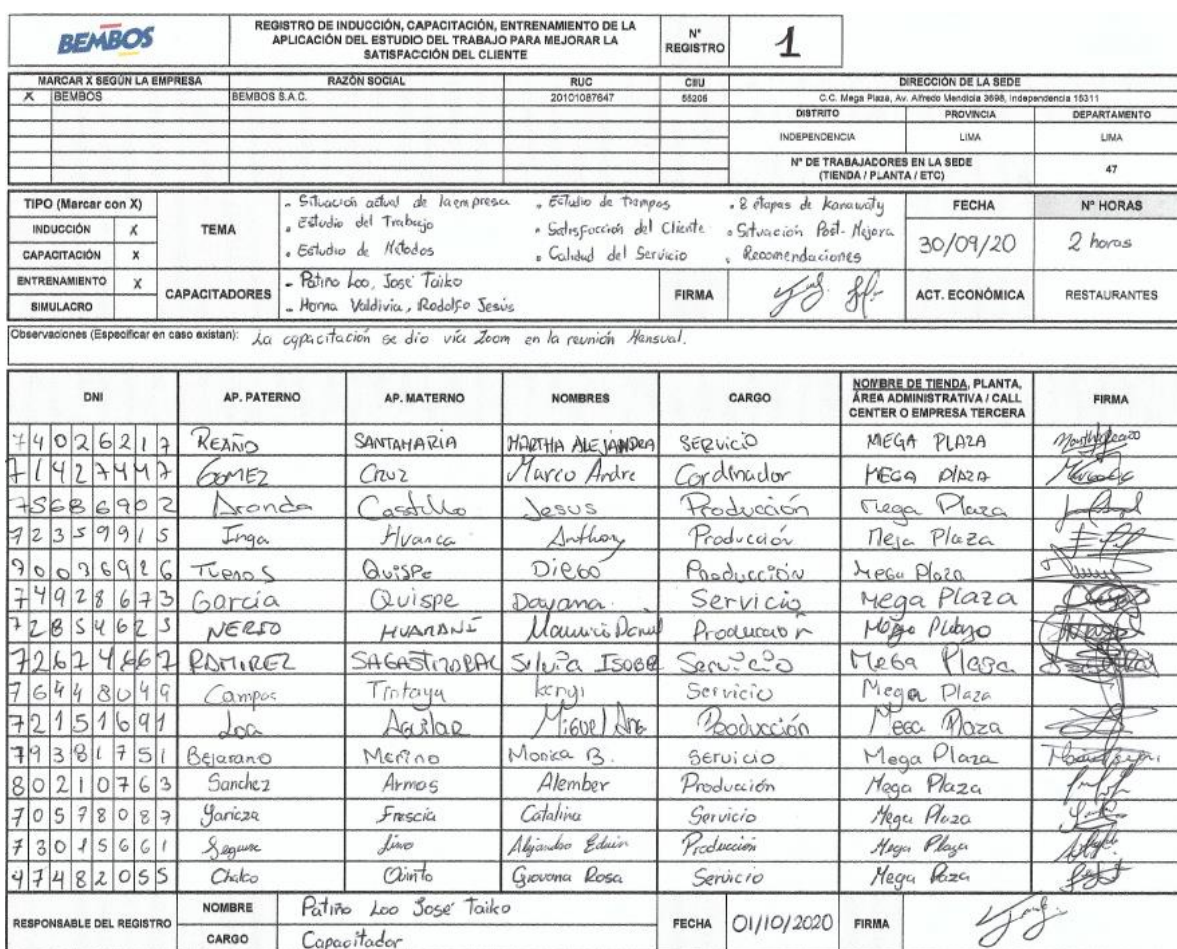 BEMBOS
REGISTRO DE INDUCCIÓN, CAPACITACIÓN, ENTRENAMIENTO DE LA APLICACIÓN DEL ESTUDIO DEL TRABAJO PARA MEJORAR LA SATISFACCIÓN DEL CLIENTE
N° REGISTRO
1
MARCAR X SEGÚN LA EMPRESA RAZÓN SOCIAL RUC CIIU DIRECCIÓN DE LA SEDE
X BEMBOS BEMBOS S.A.C. 20101087647 55205 C.C. Mega Plaza, Av. Alfredo Mendiola 3698, Independencia 15311
DISTRITO PROVINCIA DEPARTAMENTO
INDEPENDENCIA LIMA LIMA
N° DE TRABAJADORES EN LA SEDE (TIENDA / PLANTA / ETC) 47
TIPO (Marcar con X)
INDUCCIÓN X
CAPACITACIÓN X
ENTRENAMIENTO X
SIMULACRO
TEMA
- Situación actual de la empresa
- Estudio del Trabajo
- Estudio de Métodos
- Estudio de tiempos
- Satisfacción del Cliente
- Calidad del Servicio
- 8 etapas de Kanawaty
- Situación Post-Mejora
- Recomendaciones
FECHA N° HORAS
30/09/20 2 horas
CAPACITADORES
- Patiño Loo, José Taiko
- Horna Valdivia, Rodolfo Jesús
FIRMA
ACT. ECONÓMICA RESTAURANTES
Observaciones (Especificar en caso existan): La capacitación se dio vía Zoom en la reunión Mensual.
DNI AP. PATERNO AP. MATERNO NOMBRES CARGO NOMBRE DE TIENDA, PLANTA, ÁREA ADMINISTRATIVA / CALL CENTER O EMPRESA TERCERA FIRMA
74026217 REAÑO SANTAMARIA MARTHA ALEJANDRA SERVICIO MEGA PLAZA
71427447 GOMEZ Cruz Marco Andre Cordinador MEGA PLAZA
75686902 Aranda Castillo Jesus Producción Mega Plaza
72359915 Inga Huanca Anthony Producción Mega Plaza
Quispe Diego Producción Mega Plaza
74928673 García Quispe Dayana Servicio Mega Plaza
72854625 NERIO HUAMANÍ Mauricio Daniel Producción
RAMIREZ SAGASTIZABAL Silvia ISABEL Servicio Mega Plaza
76448049 Campos Tintaya kenyi Servicio Mega Plaza
72151691 Loa AGUILAR Miguel Ang Producción Mega Plaza
79381751 Bejarano Merino Monica B. Servicio Mega Plaza
80210763 Sanchez Armas Alember Producción Mega Plaza
70578087 Yaricza Frescia Catalina Servicio Mega Plaza
73015661 Segura Lino Alejandro Edwin Producción Mega Plaza
47482055 Chalco Quinto Giovana Rosa Servicio Mega Plaza
RESPONSABLE DEL REGISTRO
NOMBRE Patiño Loo José Taiko
CARGO Capacitador
FECHA 01/10/2020
FIRMA